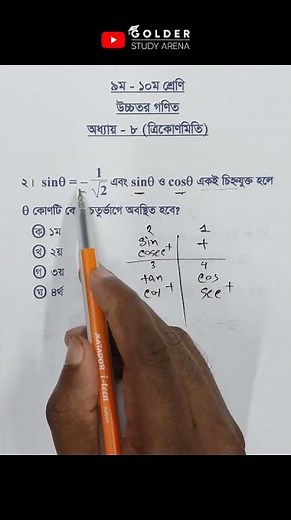 GOLDER
STUDY ARENA
৯ম - ১০ম শ্রেণি
উচ্চতর গণিত
অধ্যায় - ৮ (ত্রিকোণমিতি)
২। sinθ = - 1/√2 এবং sinθ ও cosθ একই চিহ্নযুক্ত হলে
θ কোণটি চতুর্ভাগে অবস্থিত হবে?
ক ১ম
খ ২য়
গ ৩য়
ঘ ৪র্থ
2 1
sin
cosec + +
3 4
tan cos
cot + sec +
MATADOR i-teen